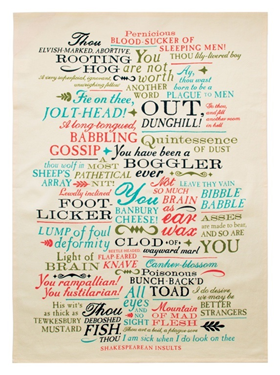 Pernicious
BLOOD-SUCKER OF
SLEEPING MEN!
Thou
ELVISH-MARKED, ABORTIVE,
ROOTING
HOG
You
are not
worth
ANOTHER
WORD
Thou lily-livered boy
Ay, thou
wast
born to be a
PLAGUE TO MEN
Fie on thee,
JOLT-HEAD!
OUT,
DUNGHILL!
A long-tongued,
BABBLING
GOSSIP
Quintessence
OF DUST
You have been a
BOGGLER
ever
thou wolf in
SHEEP'S
ARRAY
A MOST
PATHETICAL
NIT!
Lewdly inclined
FOOT-
LICKER
You
BANBURY
CHEESE!
Not
SO MUCH
BRAIN
as
ear
wax
LEAVE THY VAIN
BIBBLE
BABBLE
ASSES
are made to bear,
AND SO ARE
YOU
LUMP of foul
deformity
GOD OF
wayward
Light of
BRAIN
FLAP-EARED
KNAVE
Canker-blossom
You rampallian!
You fustilarian!
Poisonous
BUNCH-BACK'D
TOAD
His wit's
as thick as
TEWKESBURY
MUSTARD
All
EYES
AND NO
SIGHT
Mountain
OF MAD
FLESH
I do desire
we may be
BETTER
STRANGERS
Thou
DEBOSHED
FISH,
THOU
Thou art a boil, a plague sore
I am sick when I do look on thee
SHAKESPEAREAN INSULTS